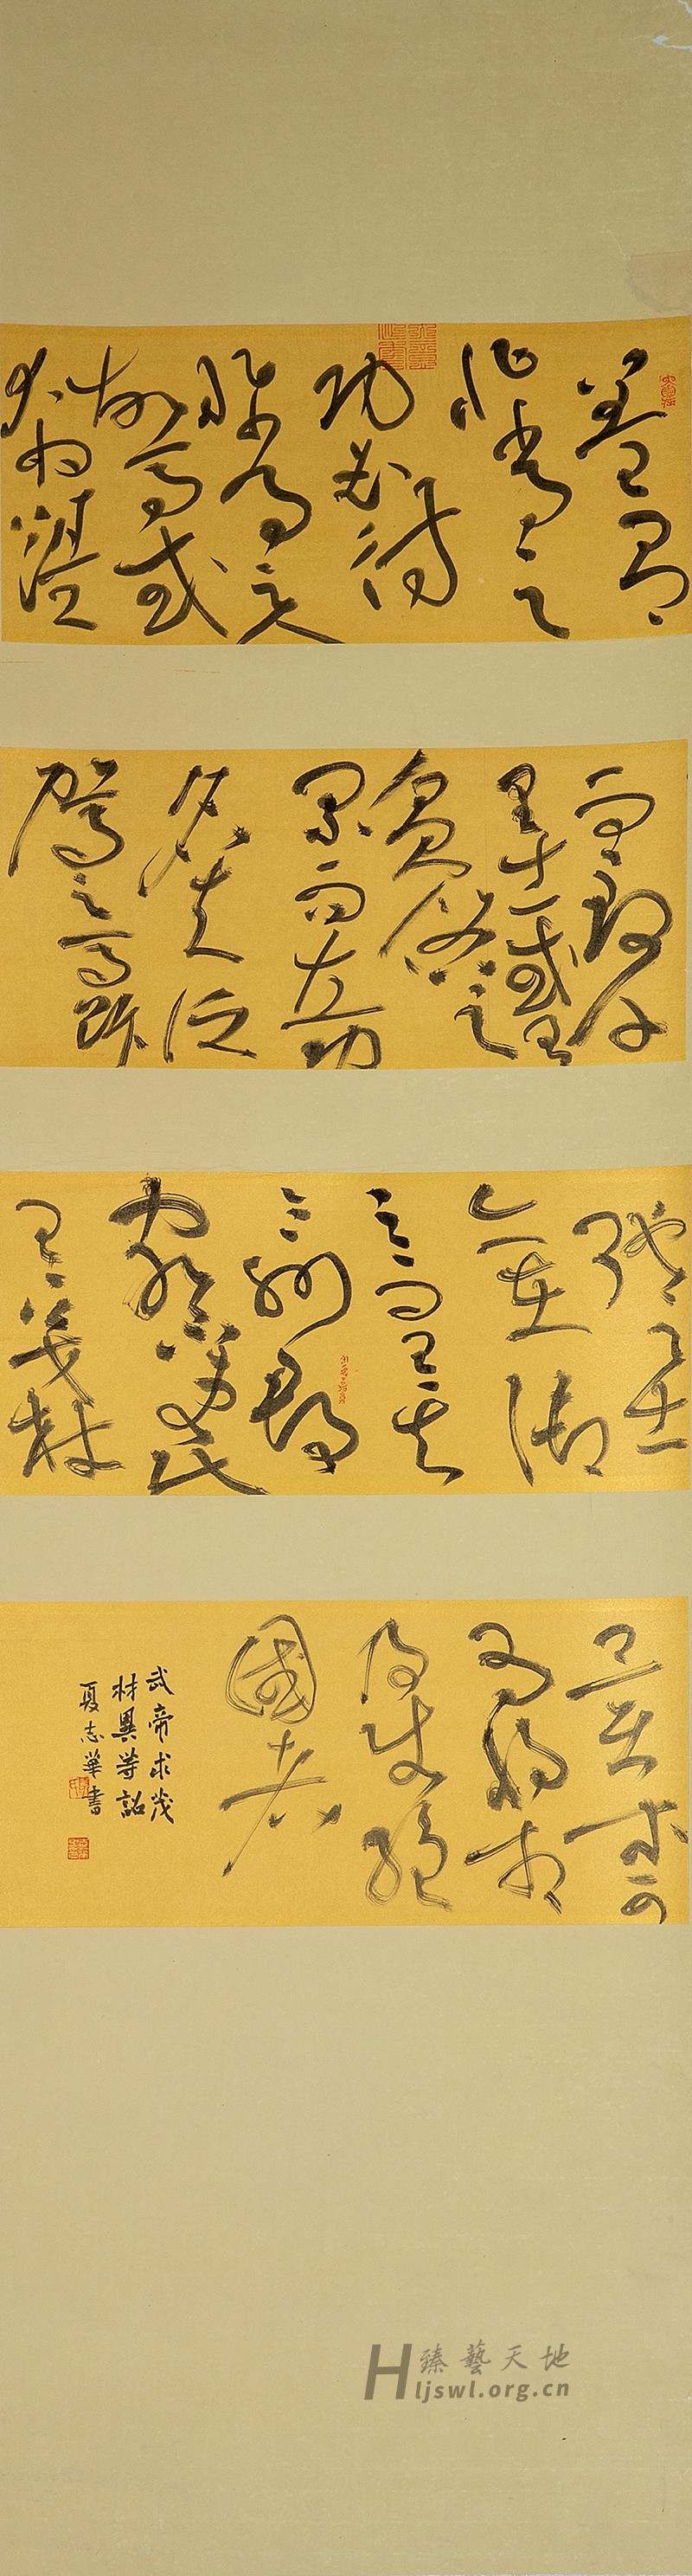 蓋有
非常之
功必待
非常之人
故馬或
奔踶
而致千
里士或有
負俗之
累而立功
名夫泛
駕之馬跅
弛之士
亦在御
之而已其
令州郡
察吏民
有茂材
異等可
為將相
及使絕
國者
武帝求茂
材異等詔
夏志華書
臻藝天地
Hljswl.org.cn